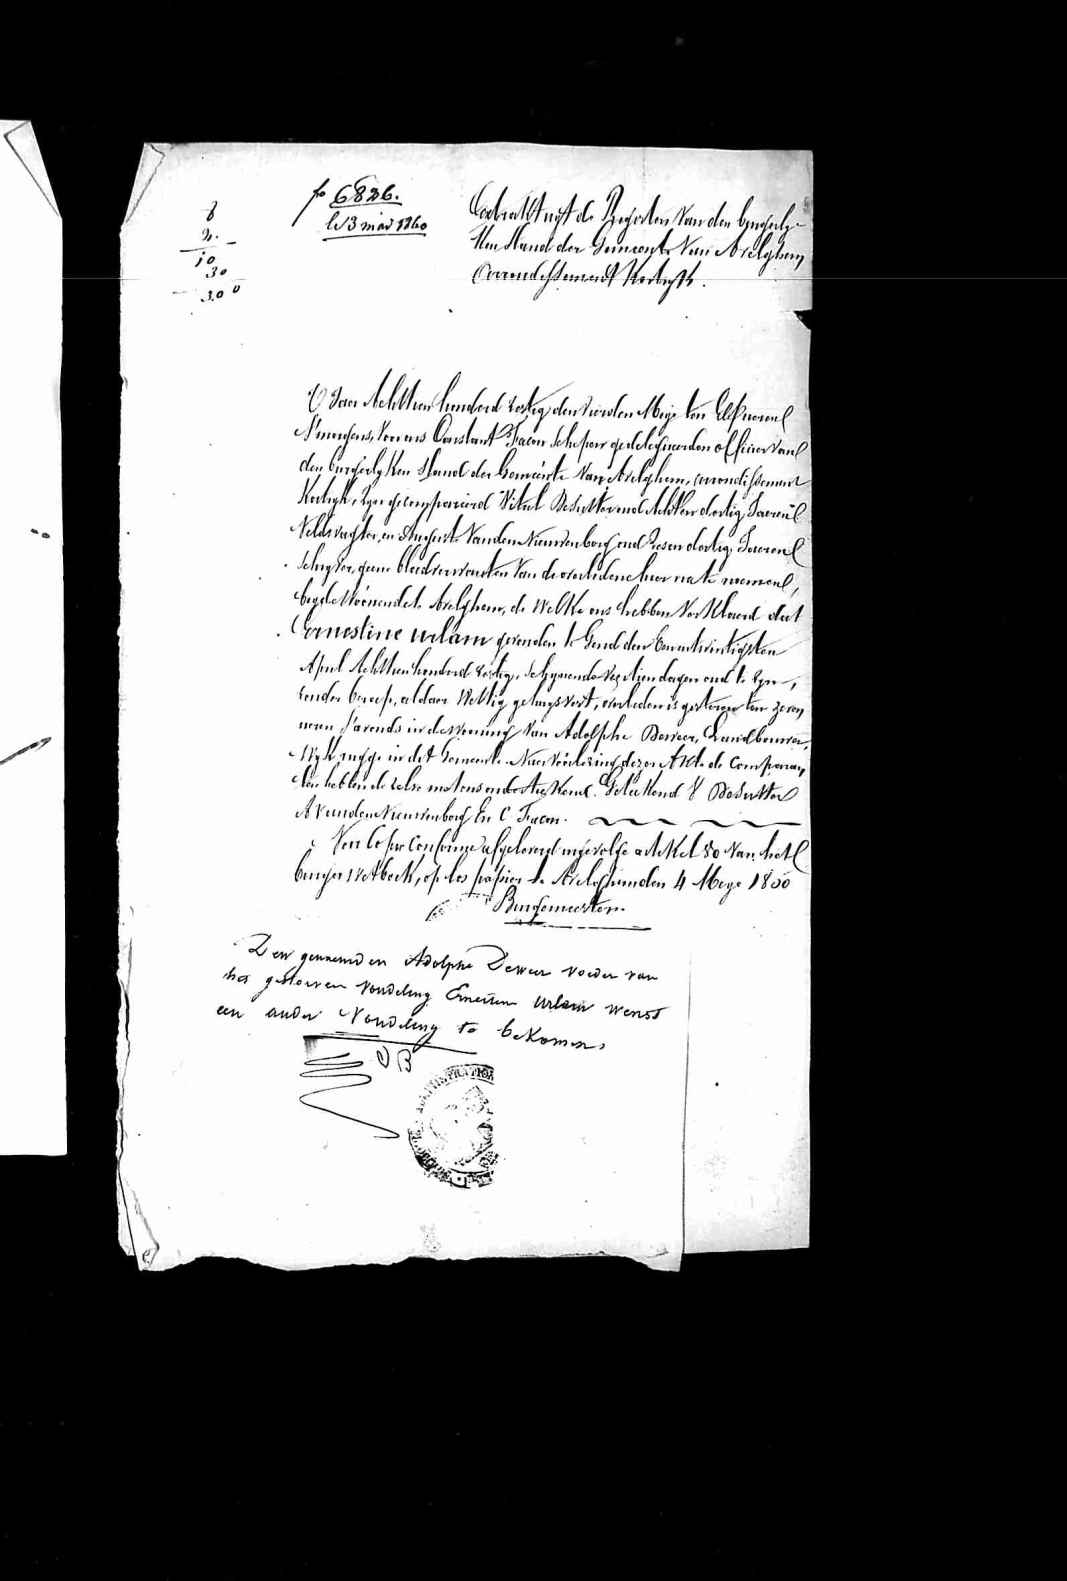 fo 6826.
le 13 mai 1860
8
2.
10
30
300
Extrakt uyt de Registers van den burgerly-
ken stand der Gemeente van Avelghem,
arrondissement Kortryk.
Jaer Achttien honderd zestig den vierden Meye ten Elf uren
S'morgens, voor ons Constant Facon schepen gedelegueerden officier van
den burgerlyken stand der Gemeente van Avelghem, arrondissement
Kortryk, zyn gecompareerd Vital Desutter oud Achten dertig Jaeren
Veldwagter, en Auguste Vanden Nieuwenborg oud zesen dertig Jaeren
schryver, geene bloedverwanten van de overledene hier na te noemen,
beyde woonende te Avelghem, de welke ons hebben verklaerd dat
Ernestine urlam gevonden te Gend den Eenentwintigsten
April Achttien honderd zestig, schynende veertien dagen oud te zyn,
zonder beroep, aldaer wettig gehuysvest, overleden is gisteren ten zeven
uren s'avonds in de wooning van Adolphe Deweer, Landbouwer,
Wyk rugge in dit Gemeente. Naer voorlezing dezer Akte de comparan-
ten hebben dezelve met ons onderteekend. Geteekend V Desutter
A vanden Nieuwenborg En C Facon.
Voor copie conforme afgeleverd ingevolge artikel 80 van het
burger wetboek, op los papier te Avelghem den 4 Meye 1860
Burgemeester.
Den genaemden Adolphe Deweer voeder van
het gestorven vondeling Ernestine urlam wenst
een ander Vondeling te bekomen.
VB
ADMINISTRATION